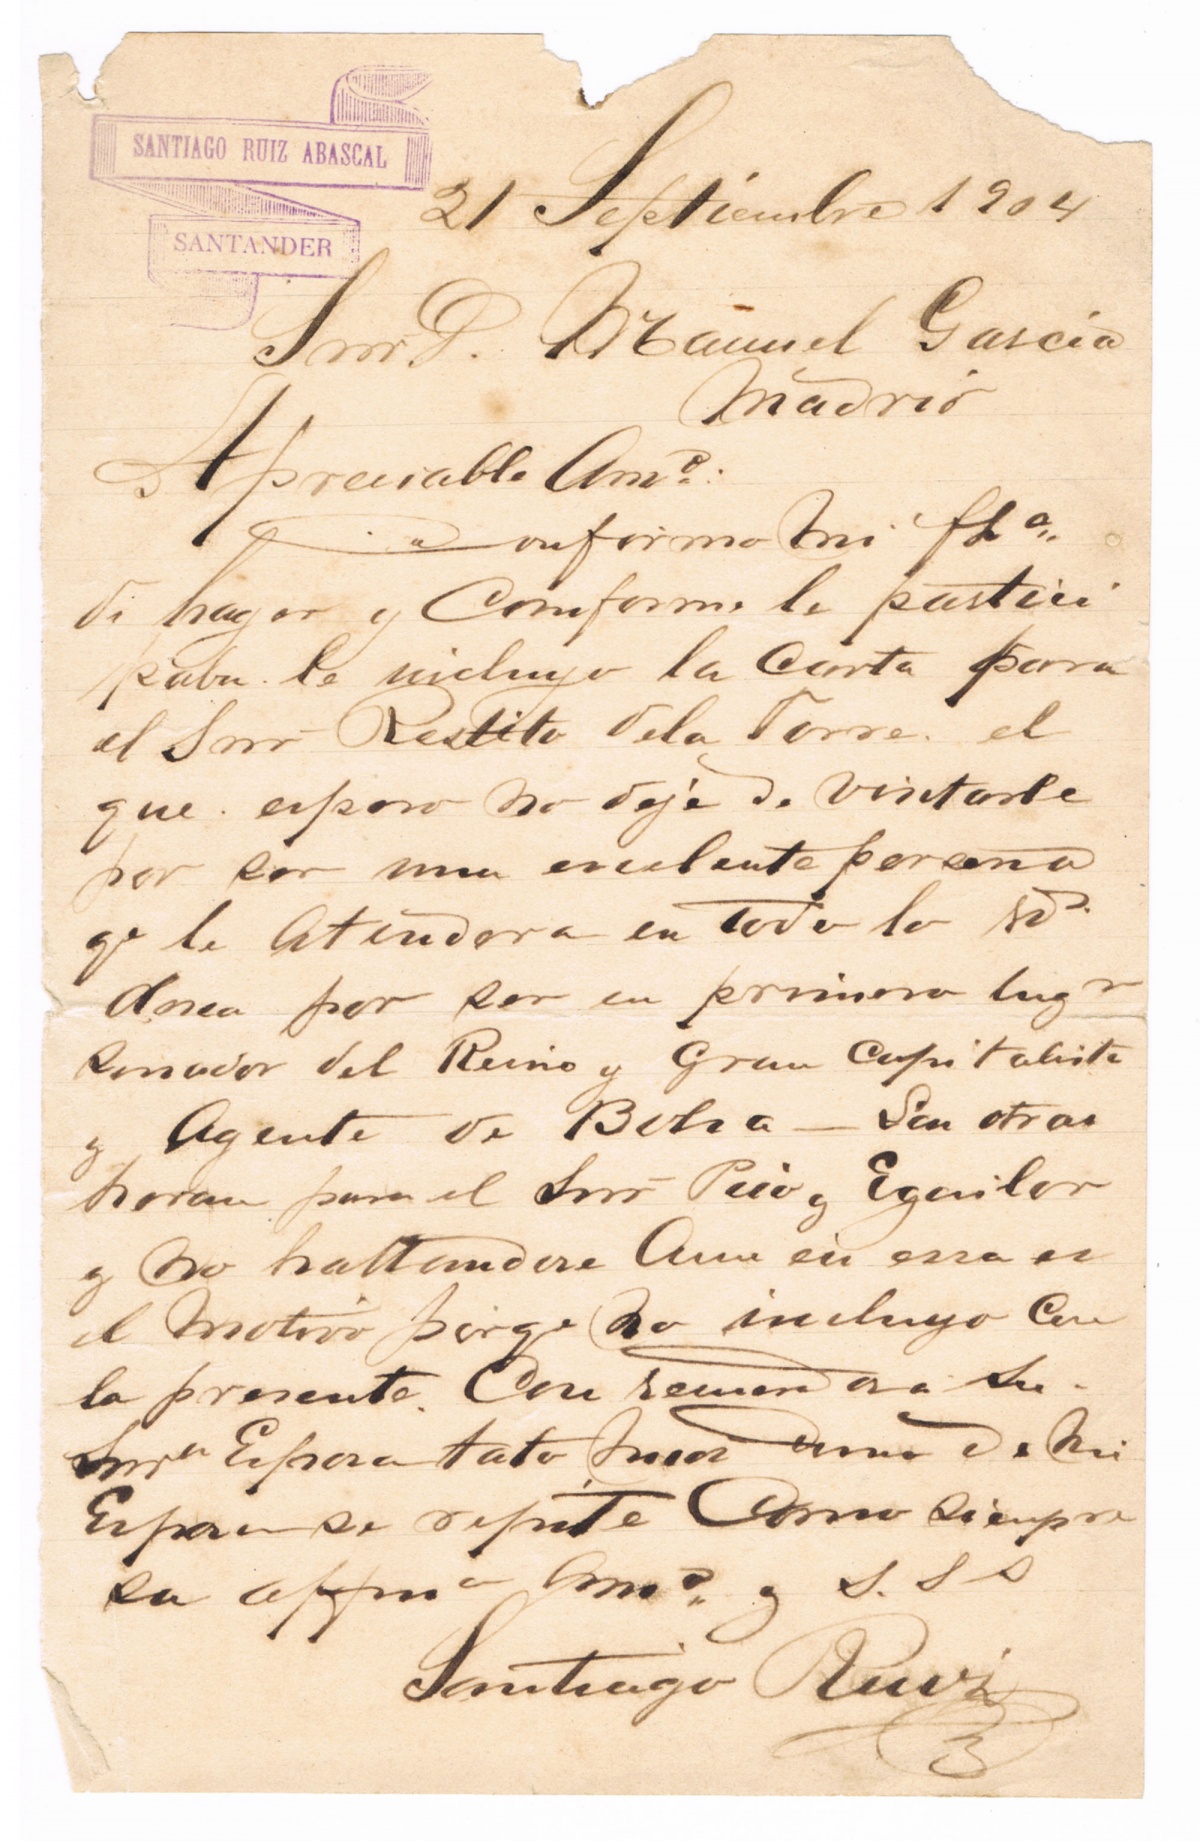 SANTIAGO RUIZ ABASCAL
SANTANDER
21 Septiembre 1904
Snr D. Manuel Garcia
Madrid
Apreciable Amº:
Conforme mi fhª
di hayer y Comforme le partici
paba le incluyo la Carta para
el Snr Restito dela Torre. el
que espero no deje de visitarle
por ser una exelente persona
qe le Atendera en todo lo Vd.
desea por ser en primero lugr
senador del Reino y Gran Capitalista
y Agente de Bolsa — Son otras
horan para el Snr Pico y Eguilor
y no hallandose Aun en essa es
el motivo porqe no incluyo Con
la presente. Con recuerdos a Su
Snra Esposa tato mios Como de mi
Esposa se repite Como siempre
su affmo Amº y S. S S
Santiago Ruiz